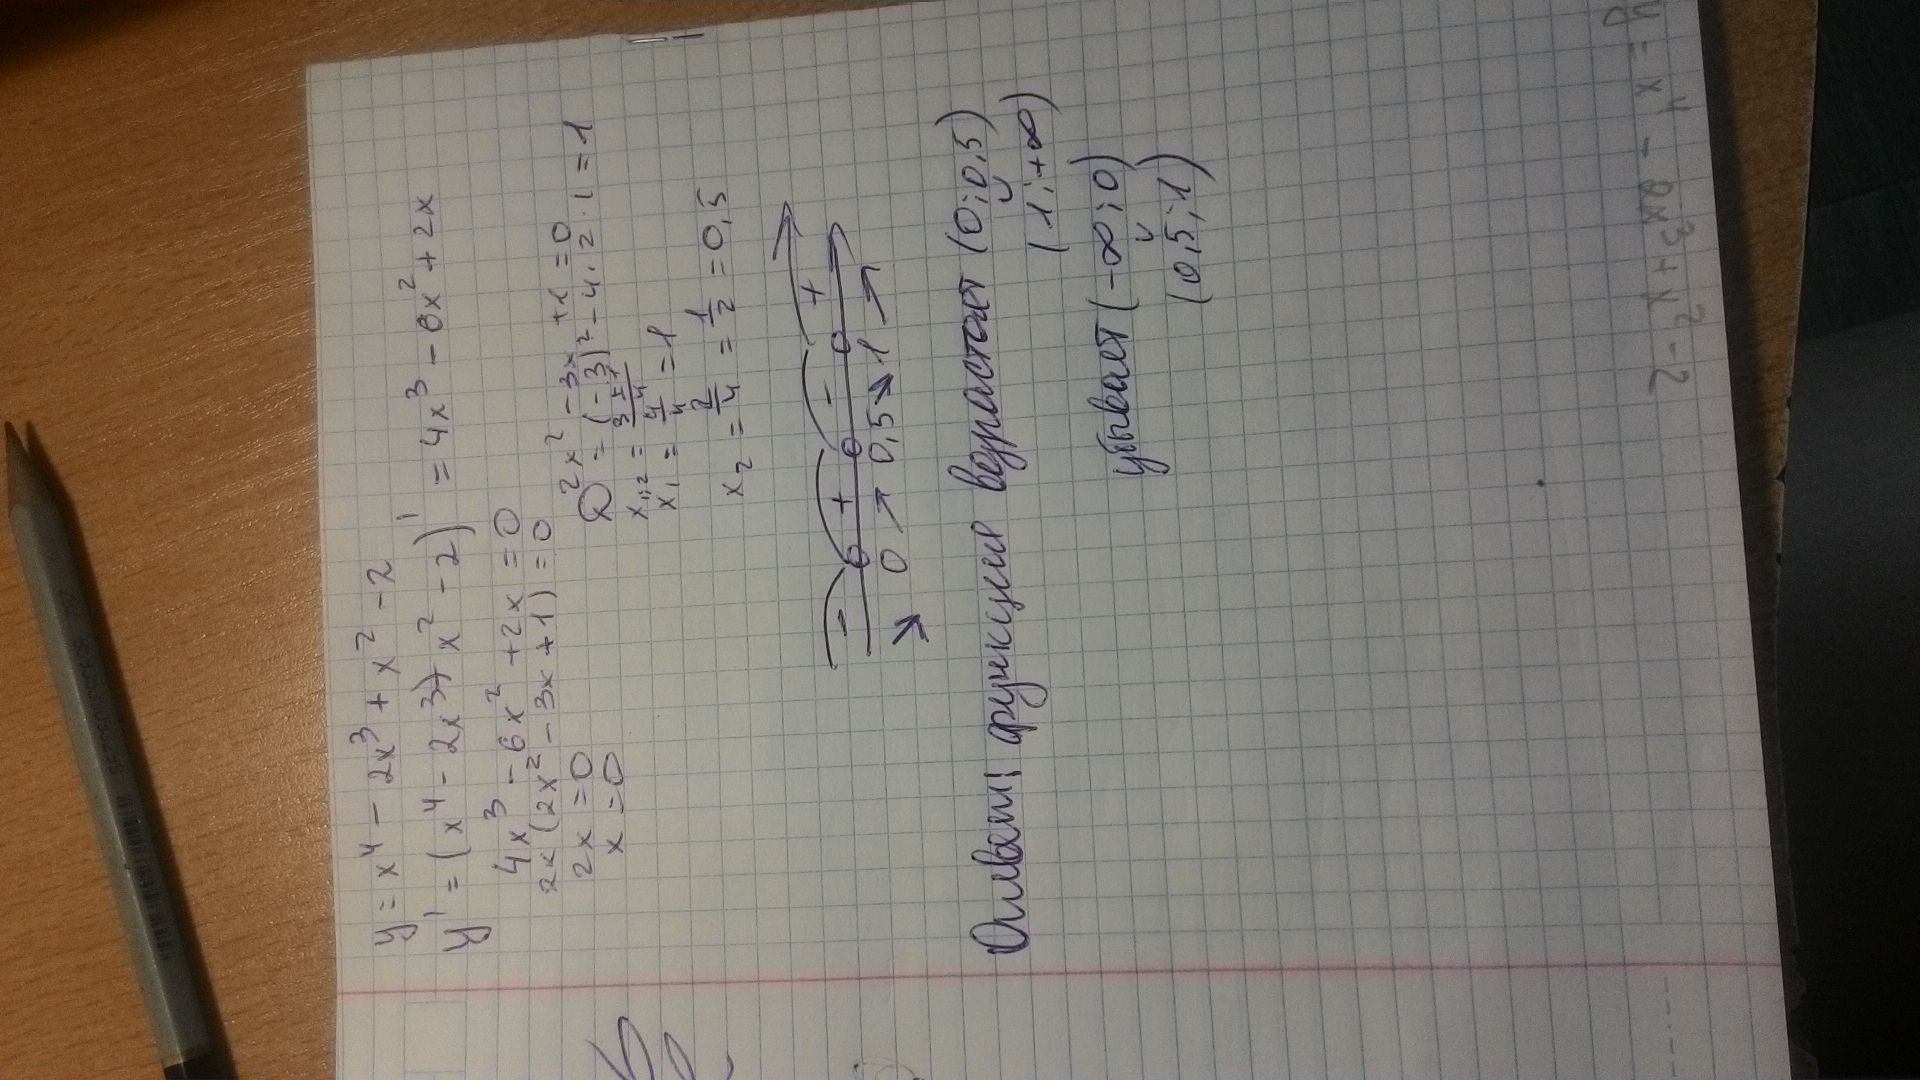 y = x⁴ - 2x³ + x² - 2
y' = (x⁴ - 2x³ + x² - 2)' = 4x³ - 6x² + 2x
4x³ - 6x² + 2x = 0
2x(2x² - 3x + 1) = 0
2x = 0
x = 0
2x² - 3x + 1 = 0
D = (-3)² - 4·2·1 = 1
x₁,₂ = (3 ± 1)/4
x₁ = 4/4 = 1
x₂ = 2/4 = 1/2 = 0,5
- + - +
↘ 0 ↗ 0,5 ↘ 1 ↗
Ответ: функция возрастает (0; 0,5)
∪
(1; +∞)
убывает (-∞; 0)
∪
(0,5; 1)
y = x⁴ - 2x³ + x² - 2